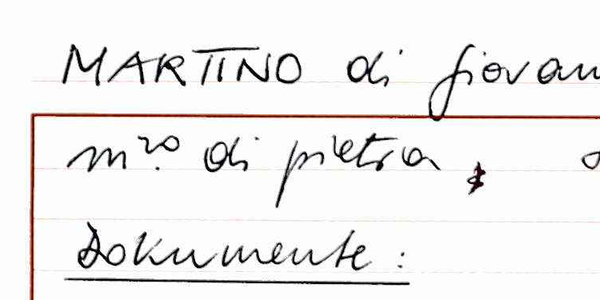 MARTINO di giovan
m.ro di pietra,
Dokumente: